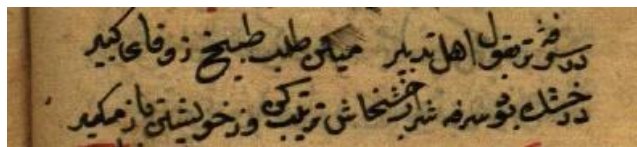 در سرفه تر بقول اهل تدبیر میکن طلب طبیخ زوفای کبیر
ور خشک بود سرفه شراب خشخاش ترتیب کن وز خویشتن باز مگیر